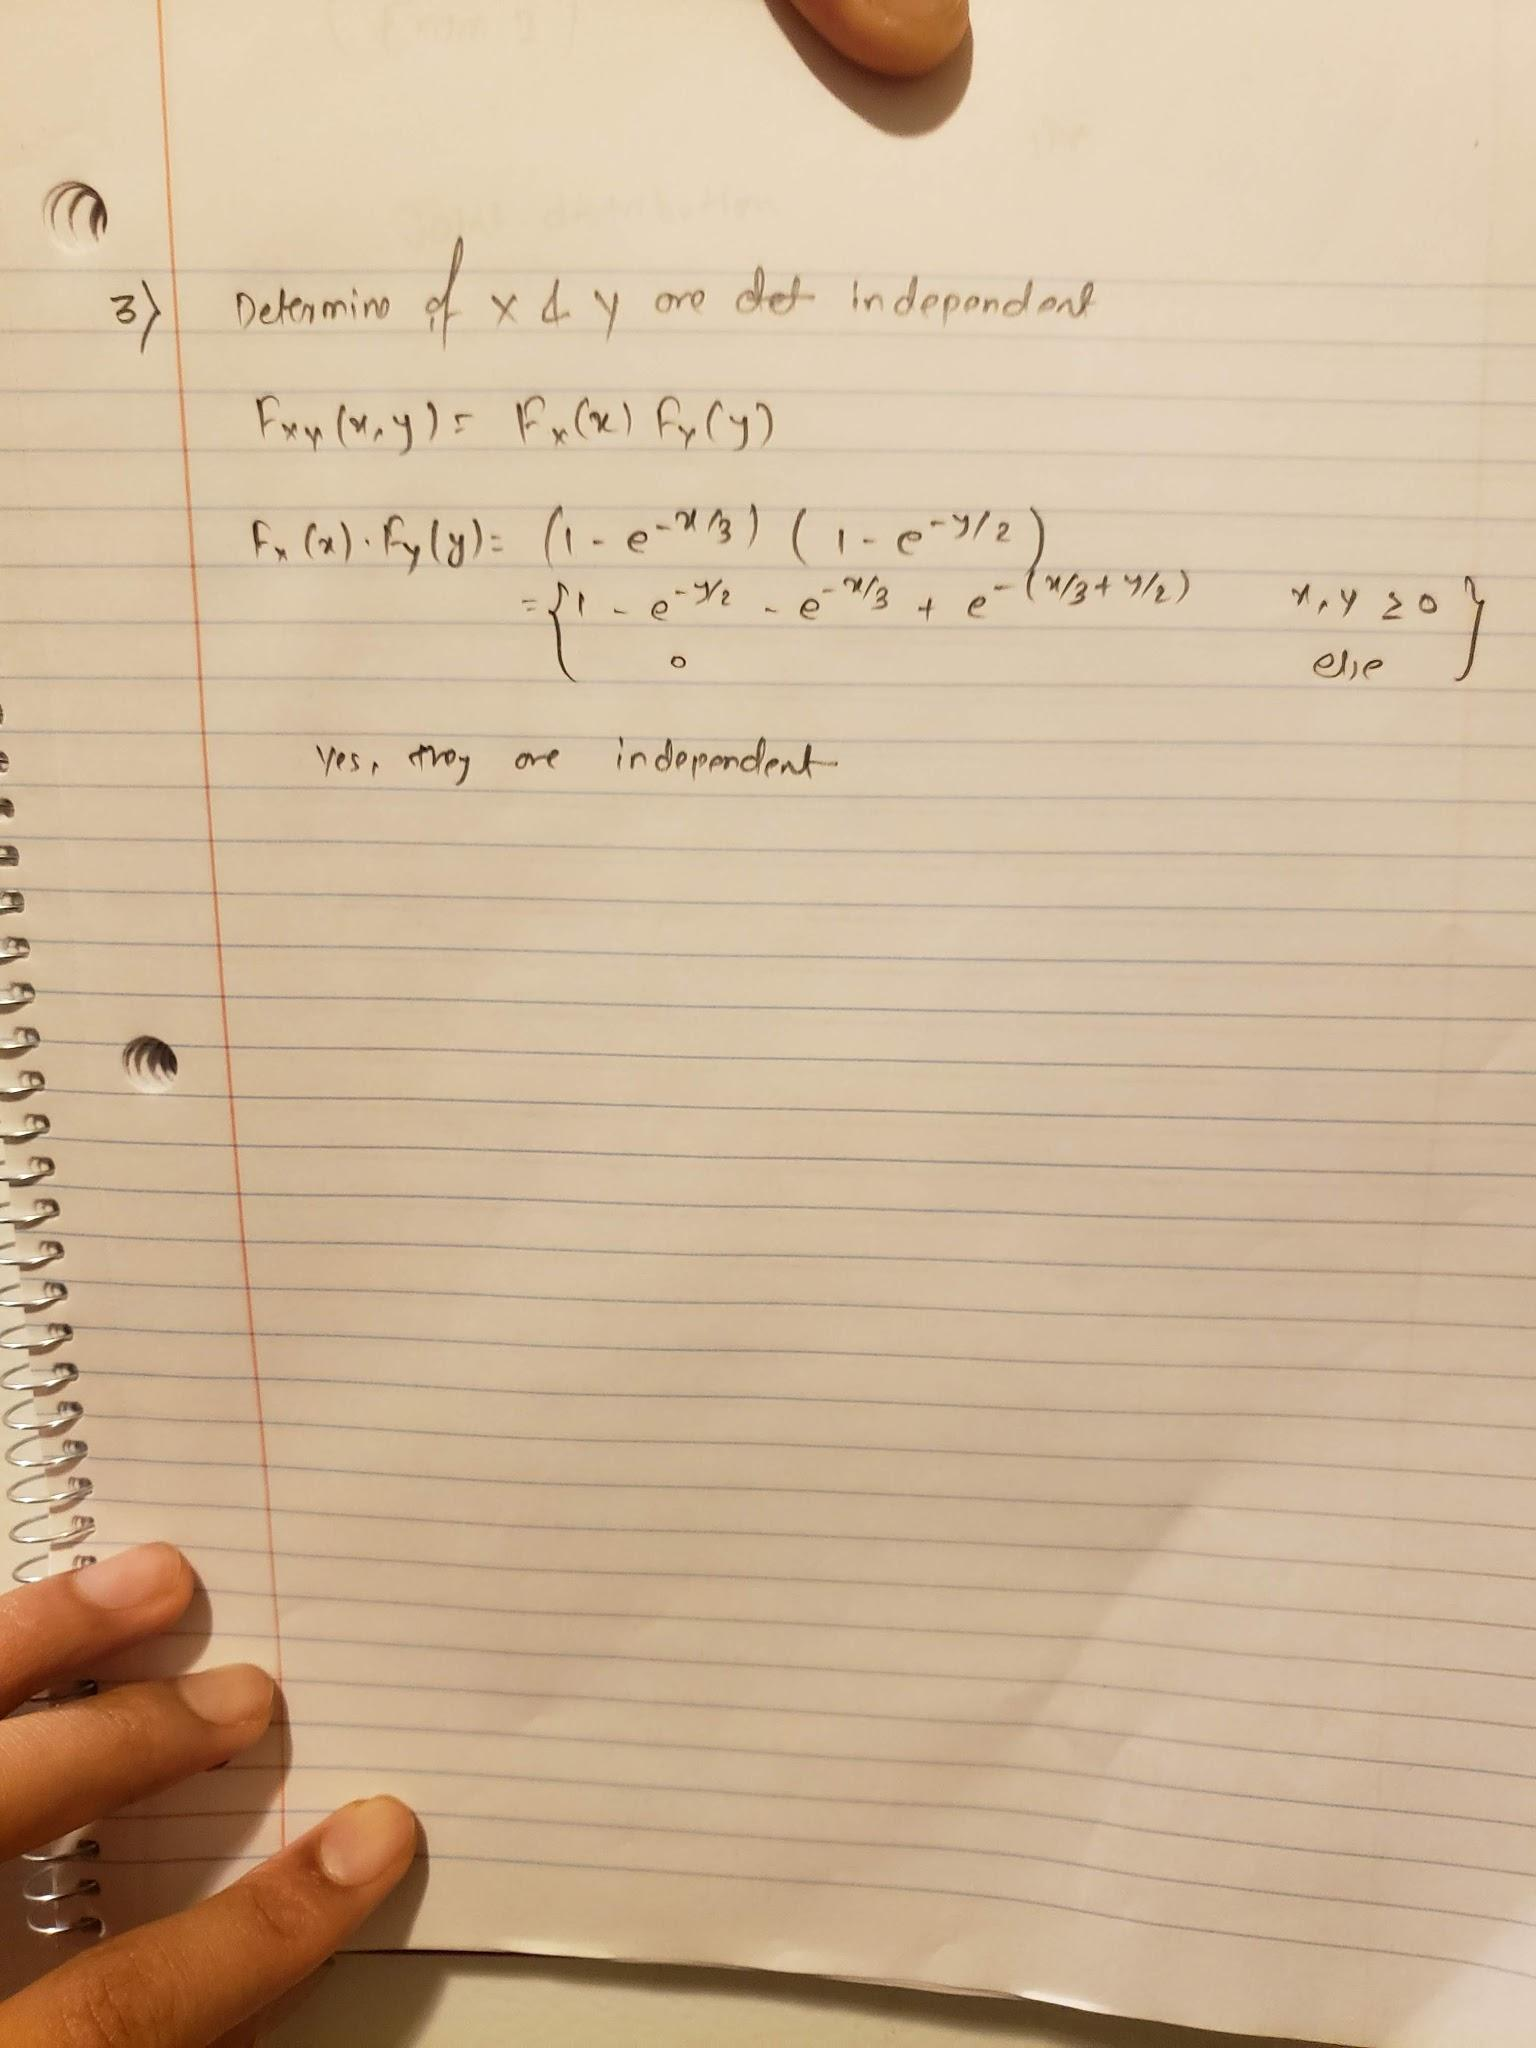 3) Determine if X & Y are det independent
F_XY(x,y) = F_X(x) F_Y(y)
F_X(x)·F_Y(y) = (1 - e^{-x/3}) (1 - e^{-y/2})
= { 1 - e^{-y/2} - e^{-x/3} + e^{-(x/3+y/2)} x,y ≥ 0 }
0 else
Yes, they are independent